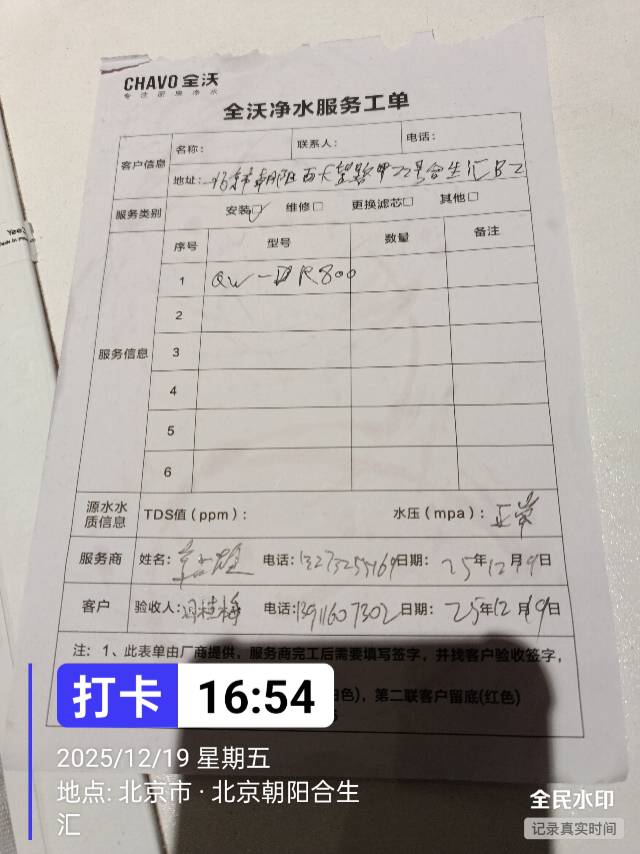 CHAVO 全沃
专注厨房净水
全沃净水服务工单
客户信息
名称：
联系人：
电话：
地址：北京市朝阳西大望路甲22号合生汇B2
服务类别
安装☑ 维修□ 更换滤芯□ 其他□
服务信息
序号 型号 数量 备注
1 QW-R800
2
3
4
5
6
源水水质信息 TDS值（ppm）： 水压（mpa）：正常
服务商 姓名： 电话：13273255169 日期：25年12月19日
客户 验收人：周桂梅 电话：13911607302 日期：25年12月19日
注：1、此表单由厂商提供，服务商完工后需要填写签字，并找客户验收签字，
色)，第二联客户留底(红色)
打卡 16:54
2025/12/19 星期五
地点: 北京市·北京朝阳合生
汇
全民水印
记录真实时间